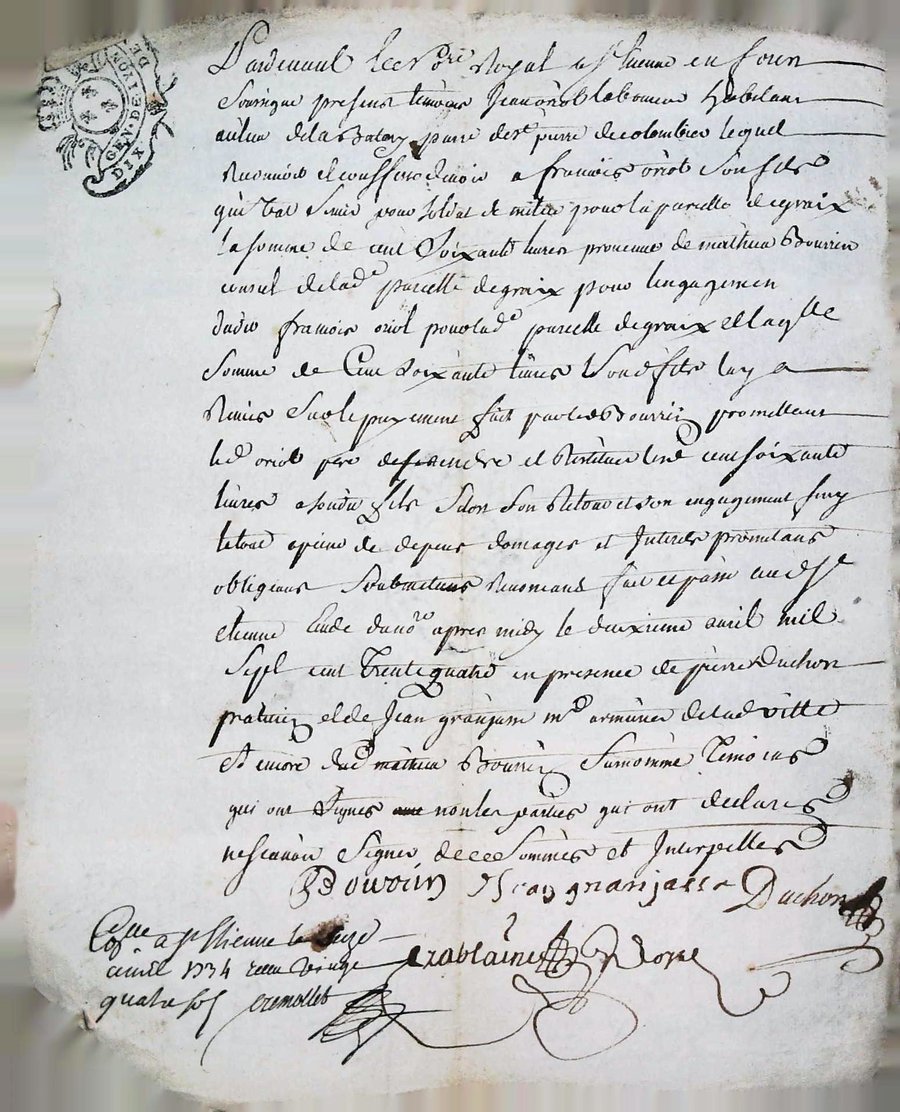 GEN. DE LYON
DIX
Pardevant le no.re Royal a st Etienne en forez
Soussigne presens temoins Jean oriol laboureur habitant
au lieu de la parr.e de st pierre de colombier lequel
Reconnoit et confesse devoir a francois oriol son fils
qui Est Servir pour soldat de milice pour la parcelle de graix
la somme de cent soixante livres provenue de mathieu Bourrin
consul de lad.e parcelle de graix pour lengagemen
dudit francois oriol pour lad.e parcelle de graix et laq.lle
somme de Cent soixante livres sond fils luy a
Remis Sur le payement fait par led Bourrin promettant
led oriol pere de rendre et Restituer lesd cent soixante
livres a sondit fils a son Retour et son engagement finy
le tout a peine de depens domages et Interets promettans
obligeans Soubmettans Renoncans fait et passé aud st
etienne Etude du no.re apres midy le deuxieme avril mil
Sept cent Trente quatre en presence de pierre Duchon
praticien et de Jean granjasse m.d armurier de lad ville
Et encore dud mathieu Bourrin Surnommé Temoins
qui ont Signés non les parties qui ont declarés
ne scavoir Signer de ce Sommés et Interpellés
Bourin Jean granjasse Duchon
Con.lle a st Etienne le seize
avril 1734 receu vingt
quatre sol